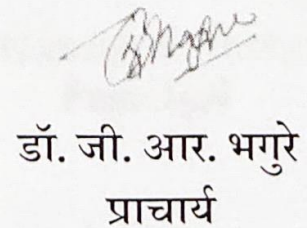 डॉ. जी. आर. भगुरे
प्राचार्य